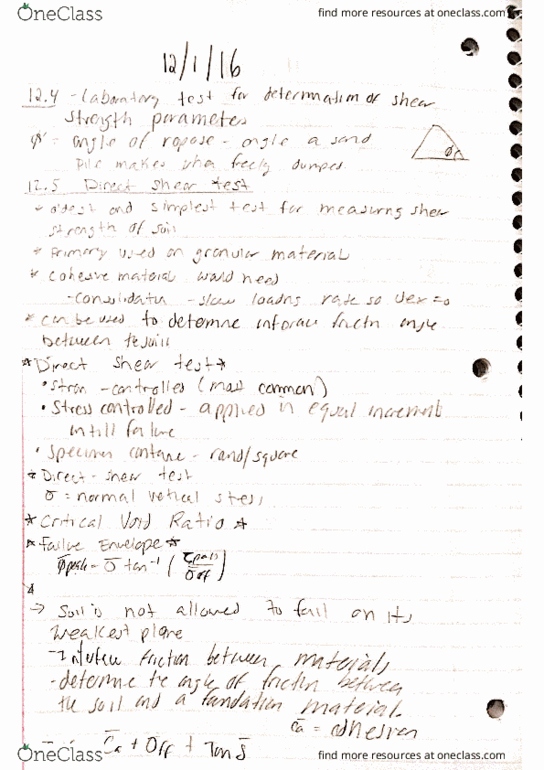 OneClass
find more resources at oneclass.com
12/1/16
12.4 - Laboratory test for determation of shear
strength parameters
φ' = angle of ropose - angle a sand
pile makes when freely dumped
φ
12.5 Direct shear test
* oldest and simplest test for measuring shear
strength of soil
* Primary used on granular material
* cohesive material would need
- consolidatn - slow loadng rate so Uex = 0
* can be used to determine interface frictn angle
between
* Direct shear test *
• Stran - controlled (most common)
• Stress controlled - applied in equal increment
intill failure
• Specimen - round/square
* Direct - shear test
σ = normal vertical stess
* Critical Void Ratio *
* Failure Envelope *
tan⁻¹ (
→ Soil is not allowed to fail on its
weakest plane
friction between materials
- determine the angle of friction between
the soil and a foundation material.
c̄a = adhesion
c̄a + σff + Tan δ̄
OneClass
find more resources at oneclass.com